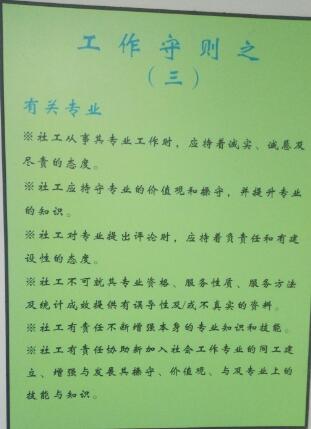 工作守则之
（三）
有关专业
※社工从事其专业工作时，应持着诚实、诚恳及
尽责的态度。
※社工应持守专业的价值观和操守，并提升专业
的知识。
※社工对专业提出评论时，应持着负责任和有建
设性的态度。
※社工不可就其专业资格、服务性质、服务方法
及统计成效提供有误导性及/或不真实的资料。
※社工有责任不断增强本身的专业知识和技能。
※社工有责任协助新加入社会工作专业的同工建
立、增强与发展其操守、价值观、与及专业上的
技能与知识。